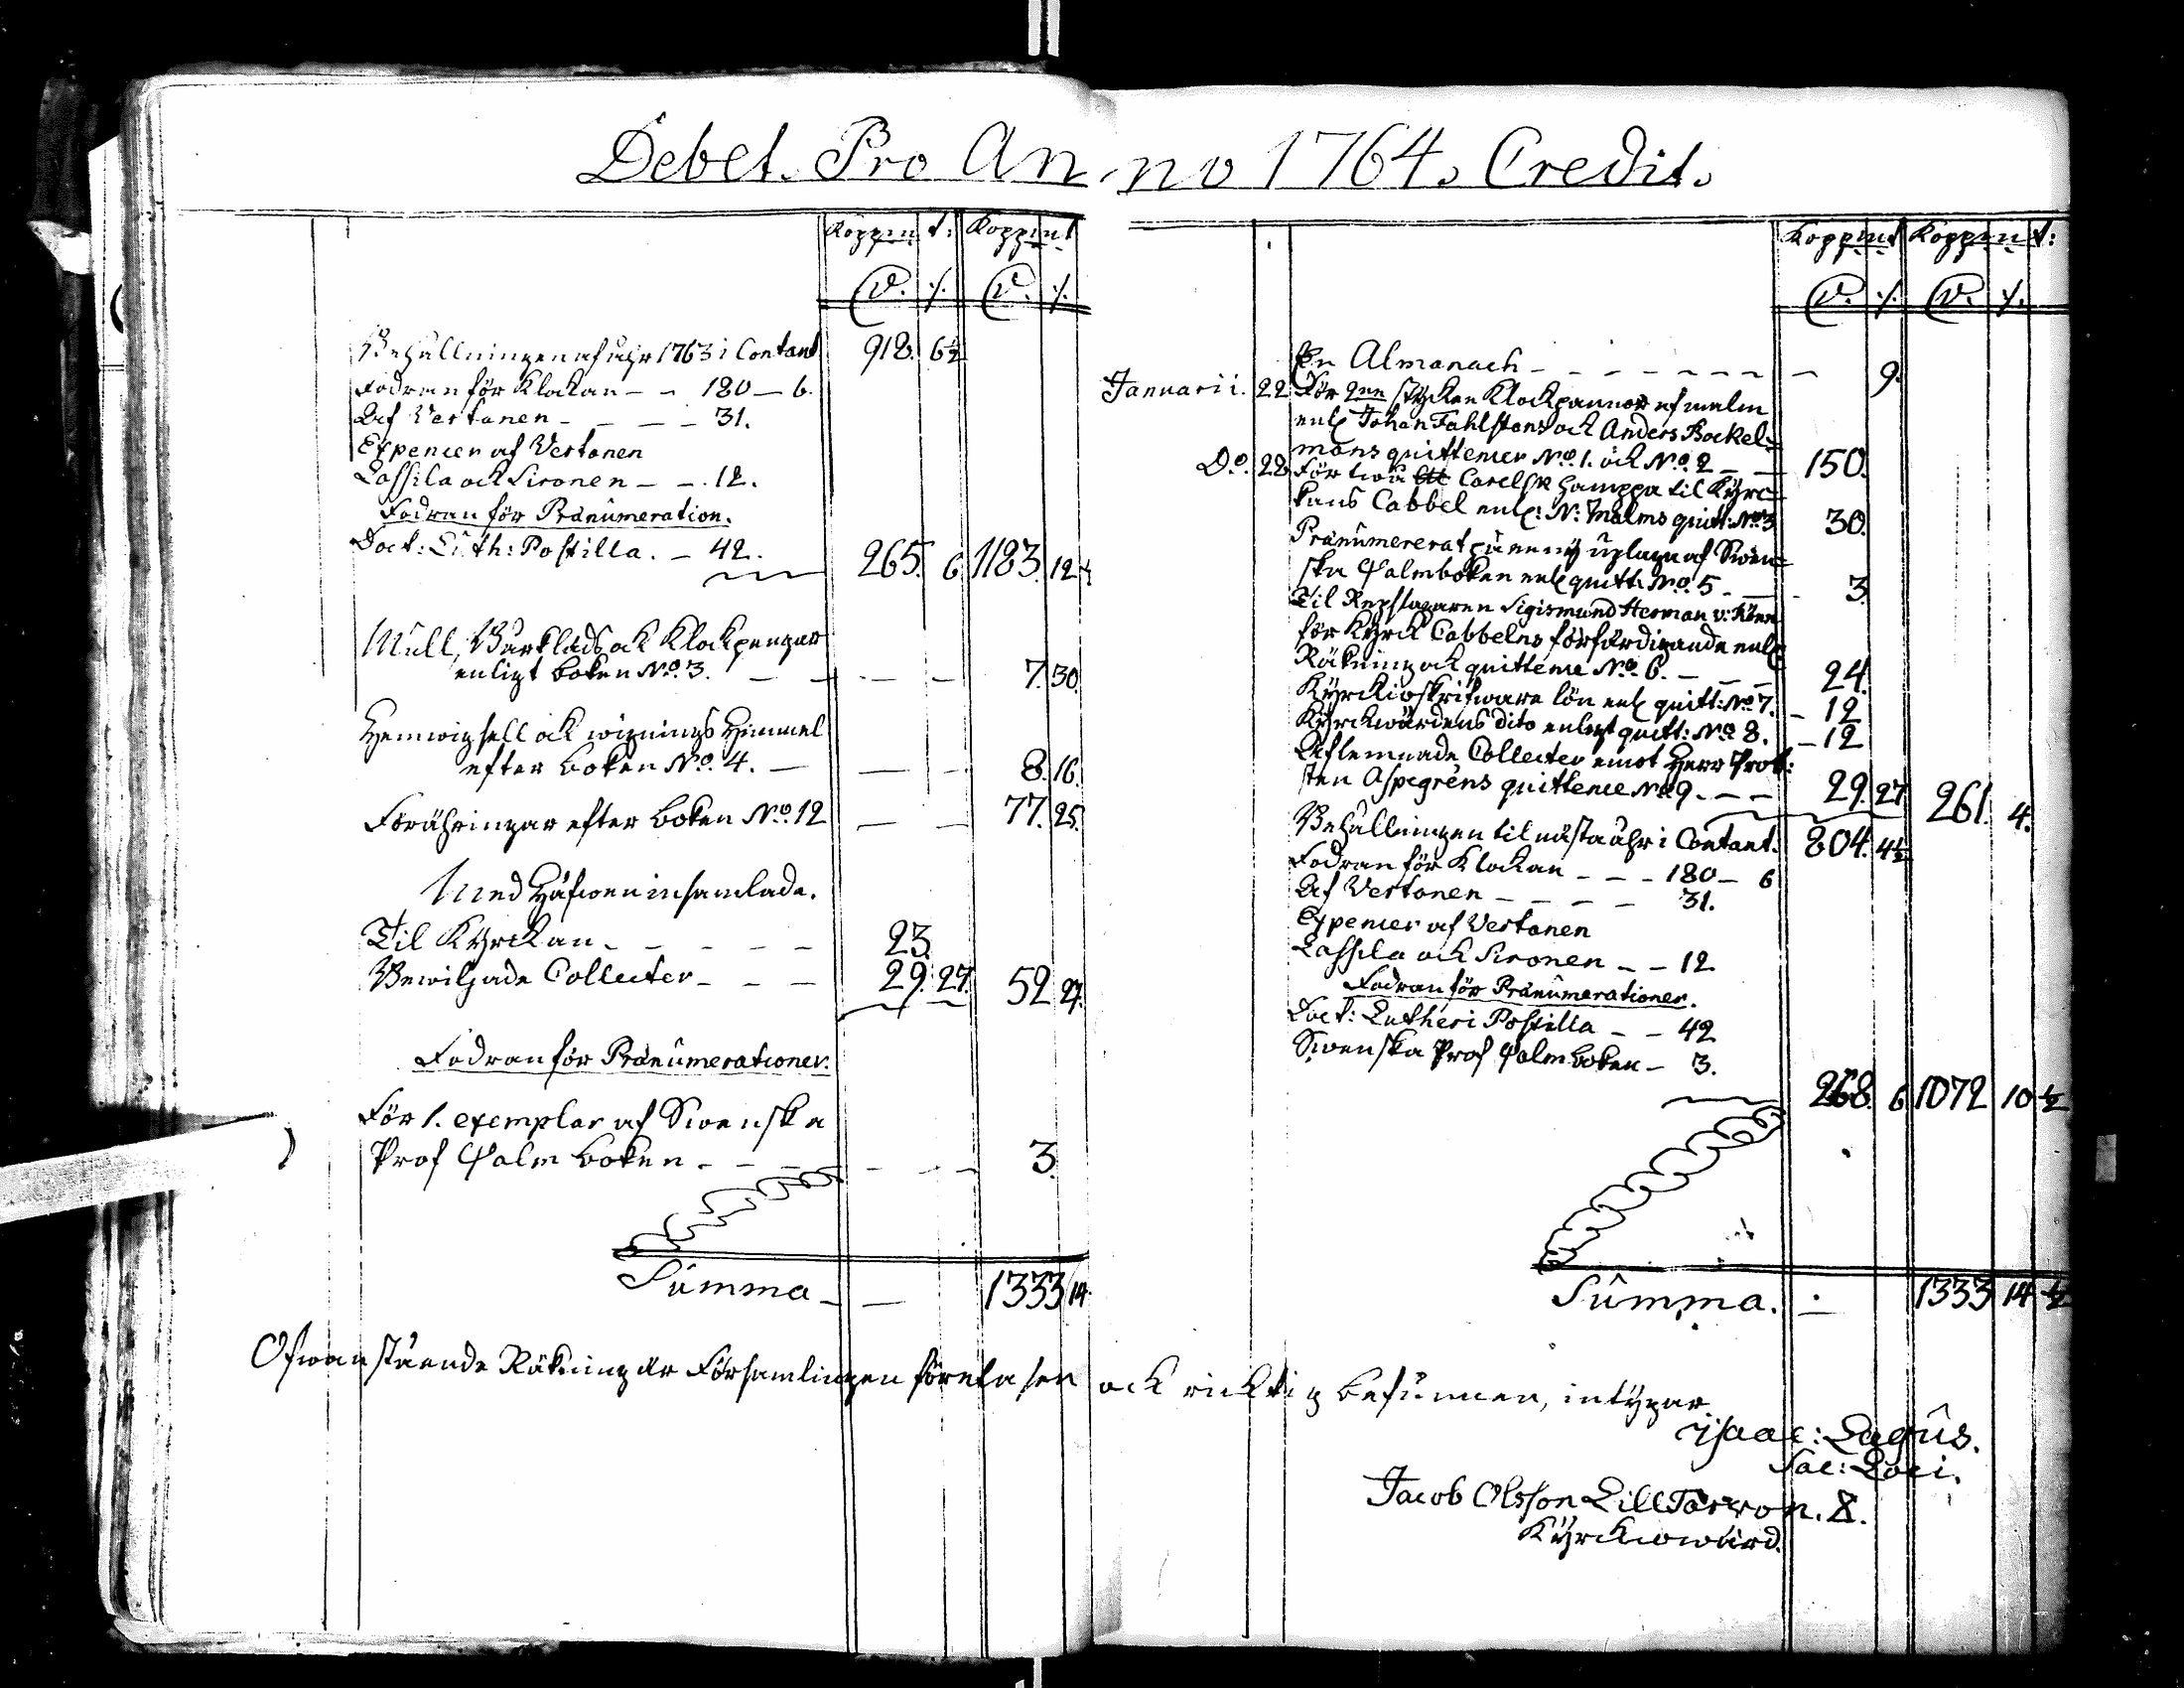 Debet. Pro Anno 1764. Credit.
Koppm t: Koppmt
D. s. D. s.
Behållningen af åhr 1763 i Contant 918. 6½
Fodran för Klockan - - 180 - 6.
Af Vertanen - - - - 31.
Expencer af Vertanen
Lassila ock Sironen - - 12.
Fodran för Pränumeration.
Doct: Luth: Postilla. - 42. 265. 6 1183. 12½
Mull, Bårklads ock Klockpengar
enligt boken No. 3. - - - - 7. 30.
efter boken No. 4. - - - 8. 16.
Förähringar efter boken No. 12 - - 77. 25.
Med Håfwen insamlade.
Til Kyrckan - - - - - 23.
Bewiljade Collecter - - - 29. 27. 52 27.
Fodran för Pränumerationer.
För 1. exemplar af Swenska
Prof Psalm boken - - - - - - 3.
Summa - - 1333 14
Koppmt Koppmt:
D. s. D. s.
En Almanach - - - - - - - - 9.
Januarii. 22 För 2ne stycken Klockpannor af malm
enl Johan Fahlstens ock Anders Backel=
mans quittencer No. 1. ock No. 2 - - 150.
Do. 22 För twå Carelsk hamppa til Kyrc=
kans Cabbel enl: N: Malms quitt: No 3 30.
Pränumererat på en ny uplaga af Swen=
ska Psalmboken enl quitt: No. 5 - - - 3.
Til Repslagaren Sigismund Herman v:
för Kyrck Cabbelns förfärdigande enl
Räkning ock quittence No. 6. - - - 24.
Kyrckioskrifware lön enl quitt: No 7. - 12
Kyrckwärdens dito enligt quitt: No 8. - 12
Aflemnade Collecter emot Herr Prob:
sten Aspegrens quittence No 9 - - - 29. 27 261. 4.
Behållningen til nästa åhr i Contant. 804. 4½
Fodran för Klockan - - - 180 - 6
Af Vertanen - - - - - 31.
Expencer af Vertanen
Lassila ock Sironen - - 12
Fodran för Pränumerationer.
Doct: Lutheri Postilla - - 42
Swenska Prof Psalm boken - 3.
268. 6 1072 10 ½
Summa. - 1333 14 ½
Ofwanstående Räkning är Församlingen föreläsen ock ricktig befunnen, intygar
Isaac: Lagus.
Sac: Loci.
Jacob Olsson Lill
Kyrckowärd.